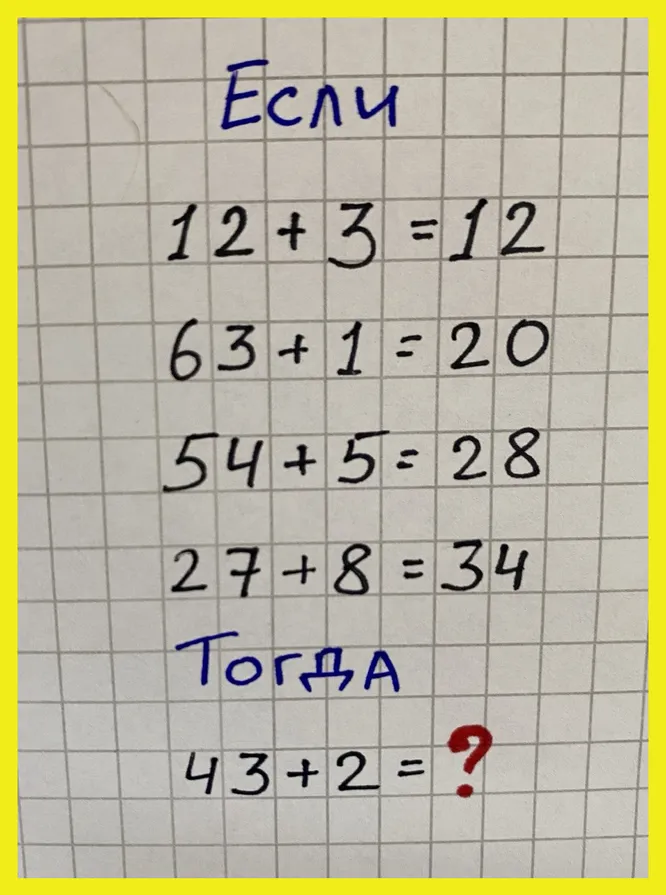 Если
12+3=12
63+1=20
54+5=28
27+8=34
Тогда
43+2=?